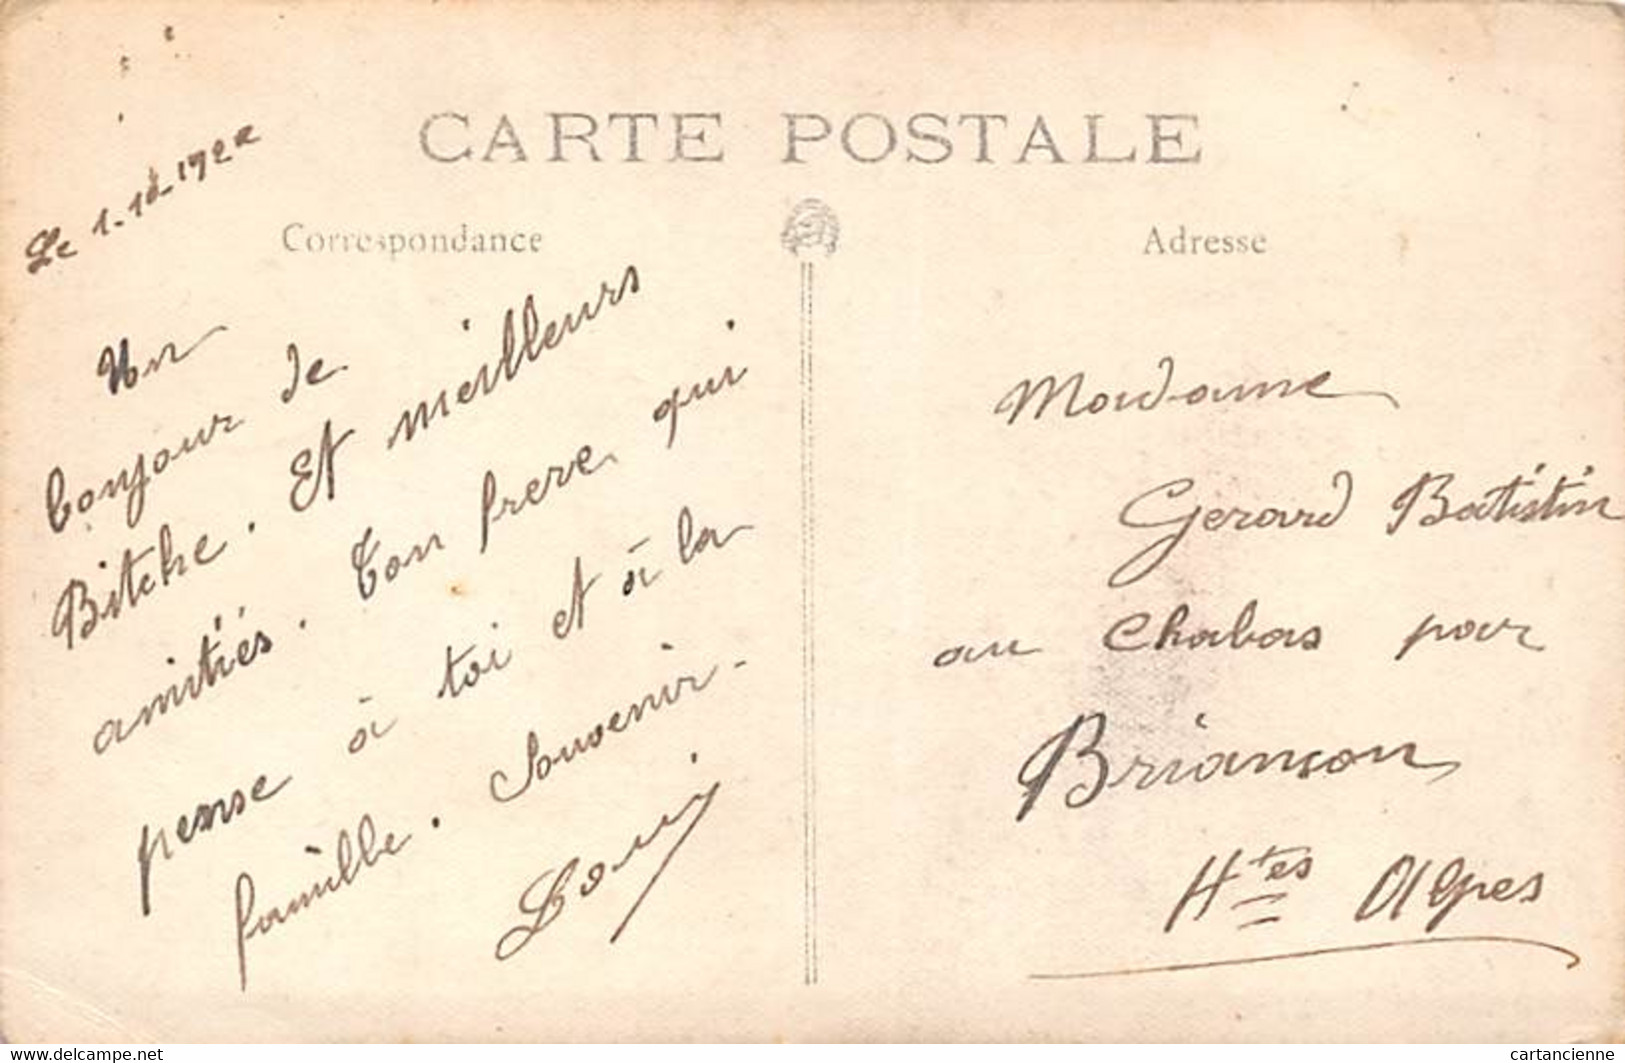 CARTE POSTALE
Correspondance
Adresse
Le 1-10-1922
Un
bonjour de
Bitche. Et meilleurs
amitiés. Ton frere qui
pense à toi et à la
famille. Souvenir-
Louis
Madame
Gerard Batistin
au Chabas par
Briançon
Htes Alpes
www.delcampe.net
cartancienne